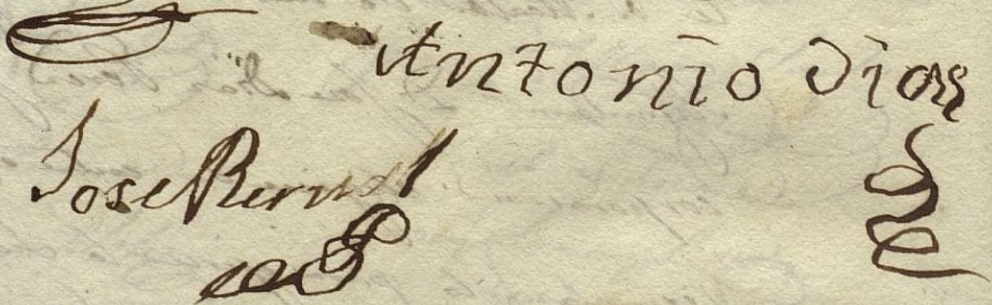 Antonio Dias
Jose Bernal